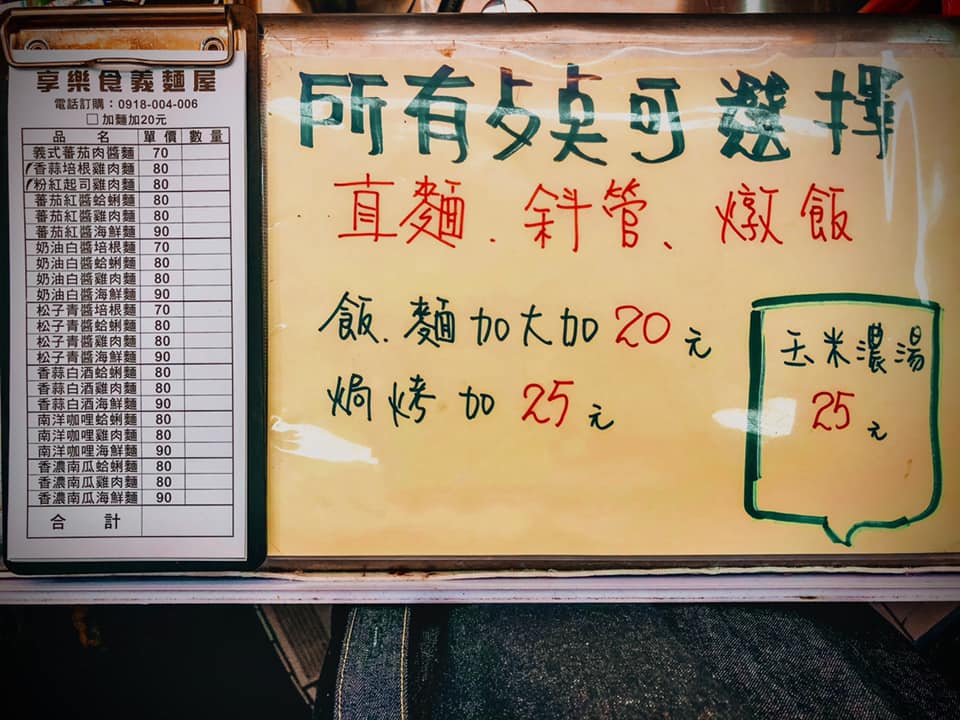 享樂食義麵屋
電話訂購：0918-004-006
□加麵加20元
品 名 單價 數量
義式蕃茄肉醬麵 70
香蒜培根雞肉麵 80
粉紅起司雞肉麵 80
蕃茄紅醬蛤蜊麵 80
蕃茄紅醬雞肉麵 80
蕃茄紅醬海鮮麵 90
奶油白醬培根麵 70
奶油白醬蛤蜊麵 80
奶油白醬雞肉麵 80
奶油白醬海鮮麵 90
松子青醬培根麵 70
松子青醬蛤蜊麵 80
松子青醬雞肉麵 80
松子青醬海鮮麵 90
香蒜白酒蛤蜊麵 80
香蒜白酒雞肉麵 80
香蒜白酒海鮮麵 90
南洋咖哩蛤蜊麵 80
南洋咖哩雞肉麵 80
南洋咖哩海鮮麵 90
香濃南瓜蛤蜊麵 80
香濃南瓜雞肉麵 80
香濃南瓜海鮮麵 90
合 計
所有歺奌可選擇
直麵、斜管、燉飯
飯、麵加大加20元
焗烤加25元
玉米濃湯
25元